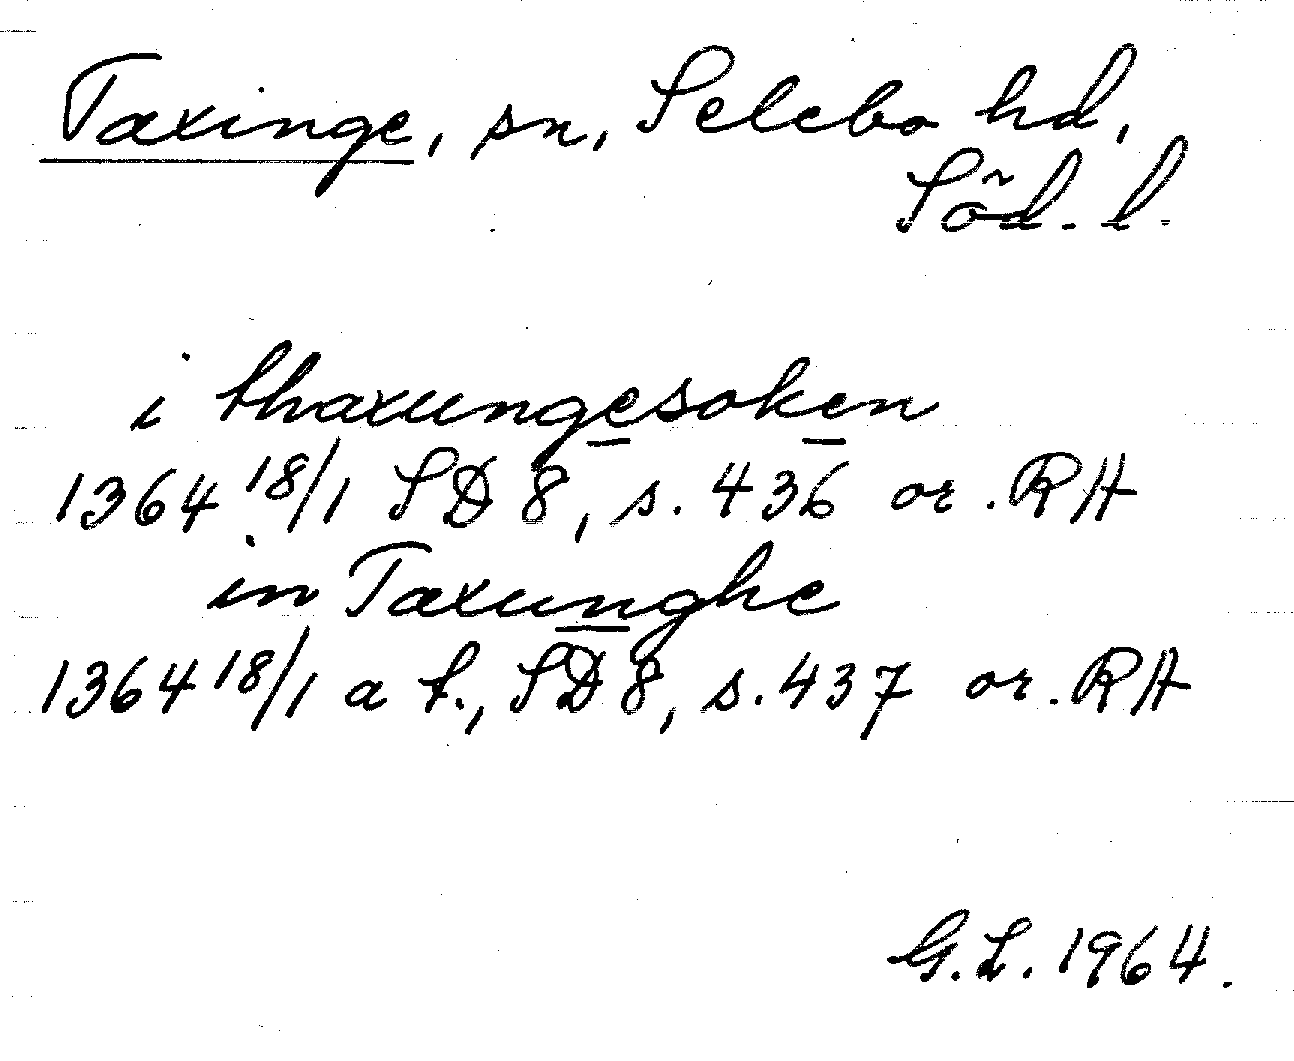 Taxinge, sn, Selebo hd,
Söd. l.
i thaxungesoken
1364 18/1 SD 8, s. 436 or. RA
in Taxunghe
1364 18/1 a t., SD 8, s. 437 or. RA
G.L. 1964.